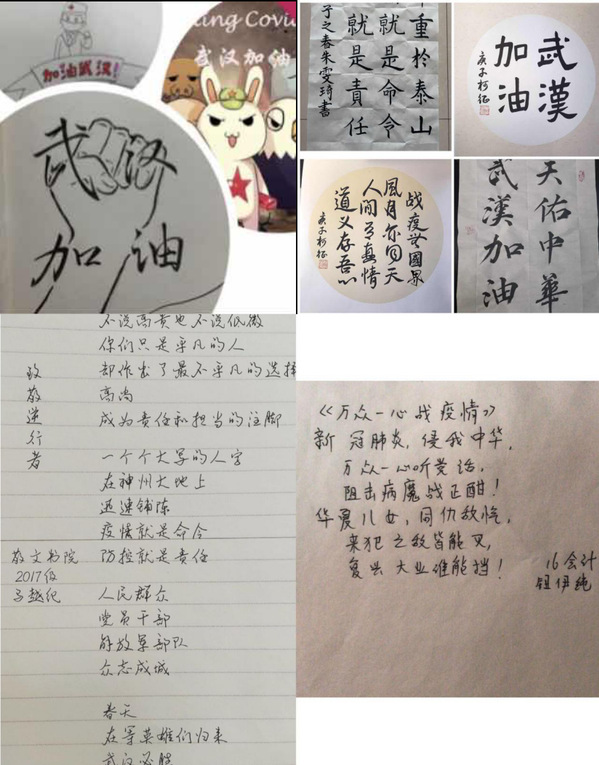 加油武汉!
ting Covid
武汉加油
武汉
加油
重於泰山
就是命令
就是責任
子之春朱雯琦書
武漢
加油
庚子柯征
战疫無國界
風月亦同天
人間有真情
道义存吾心
庚子柯征
天佑中華
武漢加油
致敬逆行者
敬文书院
2017级
马越纪
不说高贵也不说低微
你们只是平凡的人
却作出了最不平凡的选择
高尚
成为责任和担当的注脚
一个个大写的人字
在神州大地上
迅速铺陈
疫情就是命令
防控就是责任
人民群众
党员干部
解放军部队
众志成城
春天
在等英雄们归来
武汉必胜
《万众一心战疫情》
新冠肺炎,侵我中华,
万众一心听党话,
阻击病魔战正酣!
华夏儿女,同仇敌忾,
来犯之敌皆能灭,
复兴大业谁能挡!
16会计
钮伊纯